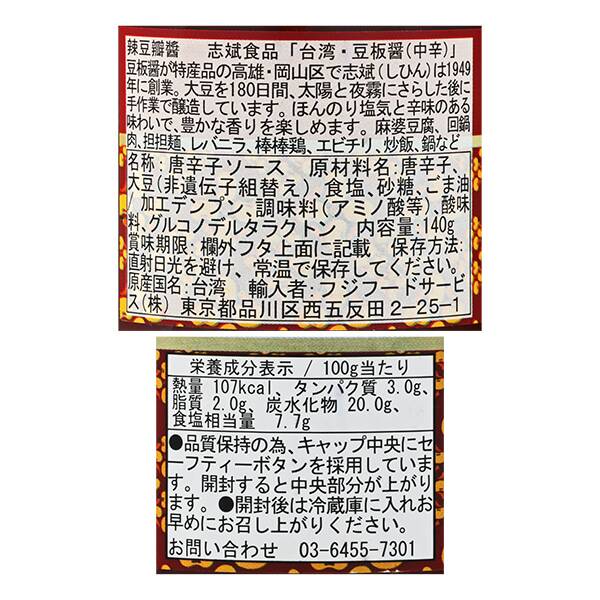 辣豆瓣醬　志斌食品「台湾・豆板醤(中辛)」
豆板醤が特産品の高雄・岡山区で志斌(しひん)は1949
年に創業。大豆を180日間、太陽と夜霧にさらした後に
手作業で醸造しています。ほんのり塩気と辛味のある
味わいで、豊かな香りを楽しめます。麻婆豆腐、回鍋
肉、担担麺、レバニラ、棒棒鶏、エビチリ、炒飯、鍋など
名称:唐辛子ソース　原材料名:唐辛子、
大豆(非遺伝子組替え)、食塩、砂糖、ごま油
/加工デンプン、調味料(アミノ酸等)、酸味
料、グルコノデルタラクトン　内容量:140g
賞味期限:欄外フタ上面に記載　保存方法:
直射日光を避け、常温で保存してください。
原産国名:台湾　輸入者:フジフードサービ
ス(株)　東京都品川区西五反田2-25-1
栄養成分表示 / 100g当たり
熱量 107kcal、タンパク質 3.0g、
脂質 2.0g、炭水化物 20.0g、
食塩相当量 7.7g
●品質保持の為、キャップ中央にセ
ーフティーボタンを採用していま
す。開封すると中央部分が上がり
ます。●開封後は冷蔵庫に入れお
早めにお召し上がりください。
お問い合わせ 03-6455-7301